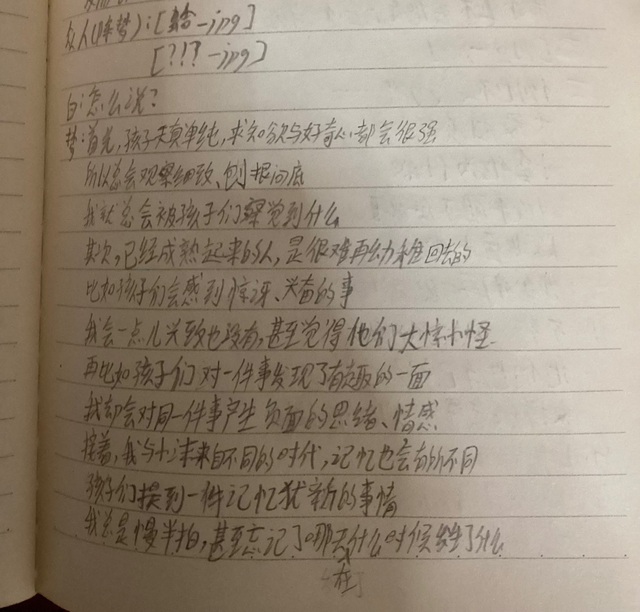 众人(除梦):[给-jpg]
[???-jpg]
白:怎么说?
梦:首先,孩子天真单纯,求知欲与好奇心都会很强
所以总会观察细致、刨根问底
我就总会被孩子们察觉到什么
其次,已经成熟起来的人,是很难再幼稚回去的
比如孩子们会感到惊讶、兴奋的事
我会一点儿兴致也没有,甚至觉得他们大惊小怪
再比如孩子们对一件事发现了有趣的一面
我却会对同一件事产生负面的思绪、情感
接着,我与小洋来自不同的时代,记忆也会有所不同
孩子们提到一件记忆犹新的事情
我总是慢半拍,甚至忘记了哪天什么时候发生了什么
在